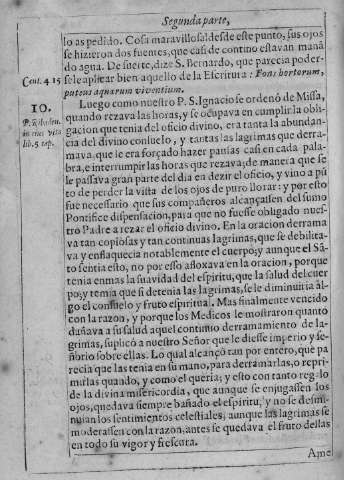 Segunda parte,
lo as pedido. Cosa maravillosa! desde este punto, sus ojos
se hizieron dos fuentes, que casi de contino estavan manã
do agua. De suerte, dize S. Bernardo, que parecia poder-
Cant. 4 15
sele aplicar bien aquello de la Escritura: Fons hortorum,
puteus aquarum viventium.
10.
Luego como nuestro P. S. Ignacio se ordenó de Missa,
P. Ribaden.
quando rezava las horas, y se ocupava en cumplir la obli-
in eius vita
gacion que tenia del oficio divino, era tanta la abundan-
lib. 5 cap.
cia del divino consuelo, y tantas las lagrimas que derra-
mava, que le era forçado hazer pausas casi en cada pala-
bra, e interrumpir las horas que rezava; de manera que se
le passava gran parte del dia en dezir el oficio, y vino a pũ
to de perder la vista de los ojos de puro llorar: y por esto
fue necessario que sus compañeros alcançassen del sumo
Pontifice dispensacion, para que no fuesse obligado nues-
tro Padre a rezar el oficio divino. En la oracion derrama
va tan copiosas y tan continuas lagrimas, que se debilita-
va y enflaquecia notablemente el cuerpo; y aunque el Sã-
to sentia esto, no por esso afloxava en la oracion, porque
tenia en mas la suavidad del espiritu, que la salud del cuer
po; y temia que si detenia las lagrimas, se le diminuiria al-
go el consuelo y fruto espiritual. Mas finalmente vencido
con la razon, y porque los Medicos le mostraron quanto
dañava a su salud aquel continuo derramamiento de la-
grimas, suplicó a nuestro Señor que le diesse imperio y se-
ñorio sobre ellas. Lo qual alcançó tan por entero, que pa
recia que las tenia en su mano, para derramarlas, o repri-
mirlas quando, y como el queria; y esto con tanto regalo
de la divina misericordia, que aunque se enjugassen los
ojos, quedava siempre bañado el espiritu, y no se desmi-
nuian los sentimientos celestiales, aunque las lagrimas se
moderassen con la razon, antes se quedava el fruto dellas
en todo su vigor y frescura.
Ame